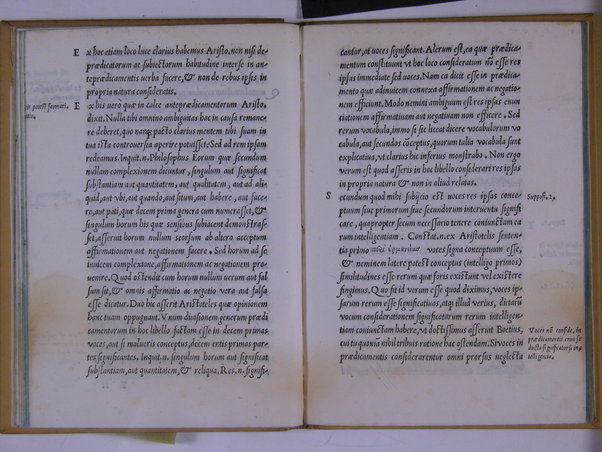 E x hoc etiam loco luce clarius habemus Aristo. non nisi de
prædicatorum ac subiectorum habitudine inter se in an-
teprædicamentis uerba facere, & non de rebus ipsis in
propria natura consideratis.
E x his uerò quæ in calce anteprædicamentorum Aristo.
dixit. Nulla tibi omnino ambiguitas hac in causa remane
re deberet, quo nanque pacto clarius mentem tibi suam in
tua ista controuersia aperire potuisset? Sed ad rem ipsam
redeamus. Inquit.n. Philosophus. Eorum quæ secundum
nullam complexionem dicuntur, singulum aut significat
substantiam aut quantitatem, aut qualitatem, aut ad ali-
quid, aut vbi, aut quando, aut situm, aut habere, aut face-
re, aut pati, quæ decem prima genera cum numerasset, &
singulum horum his quæ sensibus subiacent demonstras-
set, asserit horum nullum seorsum ab altero acceptum
affirmationem aut negationem facere. Sed horum ad se
inuicem complexione, affirmationem ac negationem pro-
uenire. Quod ostendit cum horum nullum uerum aut fal-
sum sit, & omnis affirmatio ac negatio vera aut falsa
esse dicatur. Duo hic asserit Aristoteles quæ opinionem
hanc tuam oppugnant. Vnum diuisionem generum prædi
camentorum in hoc libello factam esse in decem primas
voces, aut si malueris conceptus, decem entis primas par-
tes significantes. Inquit.n. singulum horum aut significat
substantiam, aut quantitatem, & reliqua. Res.n. signifi-
cantur, at voces significant. Alterum est, ea quæ prædica-
mentum constituunt vt hac loco considerātur nō esse res
ipsas immediate sed voces. Nam ea dicit esse in prædica-
mento quæ adinuicem connexa affirmationem ac negatio-
nem efficiunt. Modo nemini ambiguum est res ipsas enun
tiationem affirmatiuam aut negatiuam non efficere. Sed
rerum vocabula, immo si sic liceat dicere vocabulorum vo
cabula, aut secundos cōceptus, quorum talia vocabula sunt
explicatiua, vt clarius hic inferius monstrabo. Non ergo
verum est quod asseris in hoc libello considerari res ipsas
in propria natura & non in aliud relatas.
S ecundum quod mihi subijcio est voces res ipsas conce-
ptum siue primorum siue secundorum interuentu signifi
care, quapropter secum necessario tenere coniunctam ea
rum intelligentiam. Constat.n. ex Aristotelis senten-
tia primo περὶ ἑρμηνείας voces signa conceptuum esse,
& neminem latere potest conceptus (intelligo primos)
similitudines esse rerum quæ foris existūt vel existere
fingimus. Quo fit id verum esse quod diximus, voces ip-
sarum rerum esse significatiuas, atque illud verius, dictarū
vocum considerationem significatarum rerum intelligen-
tiam coniunctam habere, vt doctissimus asserit Boetius,
cui tu quamuis nihil tribuas ratione hac ostendam. Si voces in
prædicamentis considerarentur omni prorsus neglecta
Suppositio.2.
Voces nō conside. in
prædicamentis omi se-
ducta significatarū in-
telligentia.